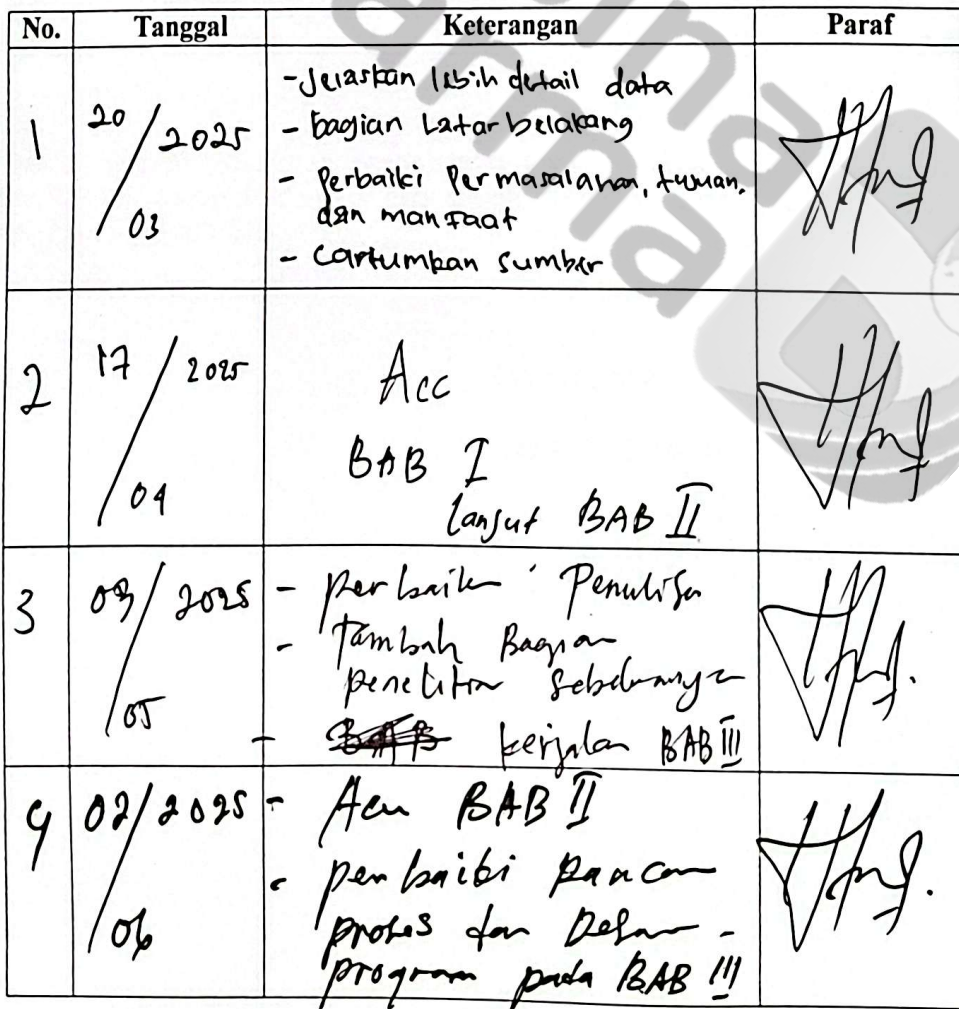 No. Tanggal Keterangan Paraf
1 20/03 2025
- Jelaskan lebih detail data
- bagian Latar belakang
- Perbaiki Permasalahan, tujuan,
dan manfaat
- cantumkan sumber
2 17/04 2025
Acc
BAB I
lanjut BAB II
3 09/05 2025
- perbaiki Penulisan
- Tambah Bagian
penelitian sebelumnya
- kerjakan BAB III
4 02/06 2025
- Acc BAB II
- perbaiki
proses dan Desain
program pada BAB III